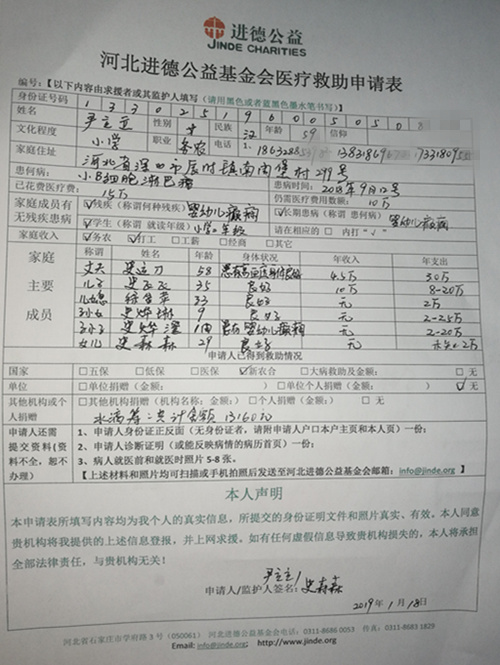 进德公益
JINDE CHARITIES
河北进德公益基金会医疗救助申请表
编号:【以下内容由求援者或其监护人填写(请用黑色或者蓝黑色墨水笔书写)】
身份证号码 1 3 3 0 2 5 1 9 6 0 0 5 0 5 0
姓名 性别 女 民族 汉 年龄 59 信仰
文化程度 小学 职业 务农 电话
家庭住址 河北省深 市辰时镇南周堡村299号
患何病: 小B细胞淋巴瘤 患病时间: 2018年9月12号
已花费医疗费: 15万 仍需医疗费用数额: 10万
家庭成员有无残疾患病 残疾(称谓何种残疾) 婴幼儿癫痫 长期患病(称谓 患何病) 婴幼儿癫痫
学生(称谓 就读年级) 小学 年级 请在相应的□内打“√”
家庭收入 务农 打工 工薪 经商 其它
家庭主要成员 称谓 姓名 年龄 身体状况 年收入 年支出
丈夫 史 刀 58 4.5万 3.0万
儿子 史 35 良好 10万 8-20万
儿媳 徐 苹 33 良好 元 2万
孙女 史烨琳 9 良好 元 2-25万
孙子 史烨 患有婴幼儿癫痫 元 2-20万
女儿 史森森 29 良好 元 2万
申请人已得到救助情况
国家 五保 低保 医保 新农合 大病救助及金额: 无
单位 单位捐赠(金额:) 单位个人捐赠(金额:) 无
其他机构或个人捐赠 其他机构捐赠(机构名称:金额:) 个人捐赠(金额:) 无
水滴筹:共计金额 13160元
申请人还需提交资料(资料不全,恕不办理)
1、申请人身份证正反面(无身份证者,请附申请人户口本户主页和本人页)一份;
2、申请人诊断证明(或能反映病情的病历首页)一份;
3、病人就医前和就医时照片 5-8 张。
【上述材料和照片均可扫描或手机拍照后发送至河北进德公益基金会邮箱:info@jinde.org】
本人声明
本申请表所填写内容均为我个人的真实信息,所提交的身份证明文件和照片真实、有效。本人同意
贵机构将我提供的上述信息登报,并上网求援。如有任何虚假信息导致贵机构损失的,本人将承担
全部法律责任,与贵机构无关!
申请人/监护人签名: 史森森
2019年1月18日
河北省石家庄市学府路 3 号(050061) 河北进德公益基金会电话:0311-8686 0053 传真:0311-8683 1829
Email: info@jinde.org